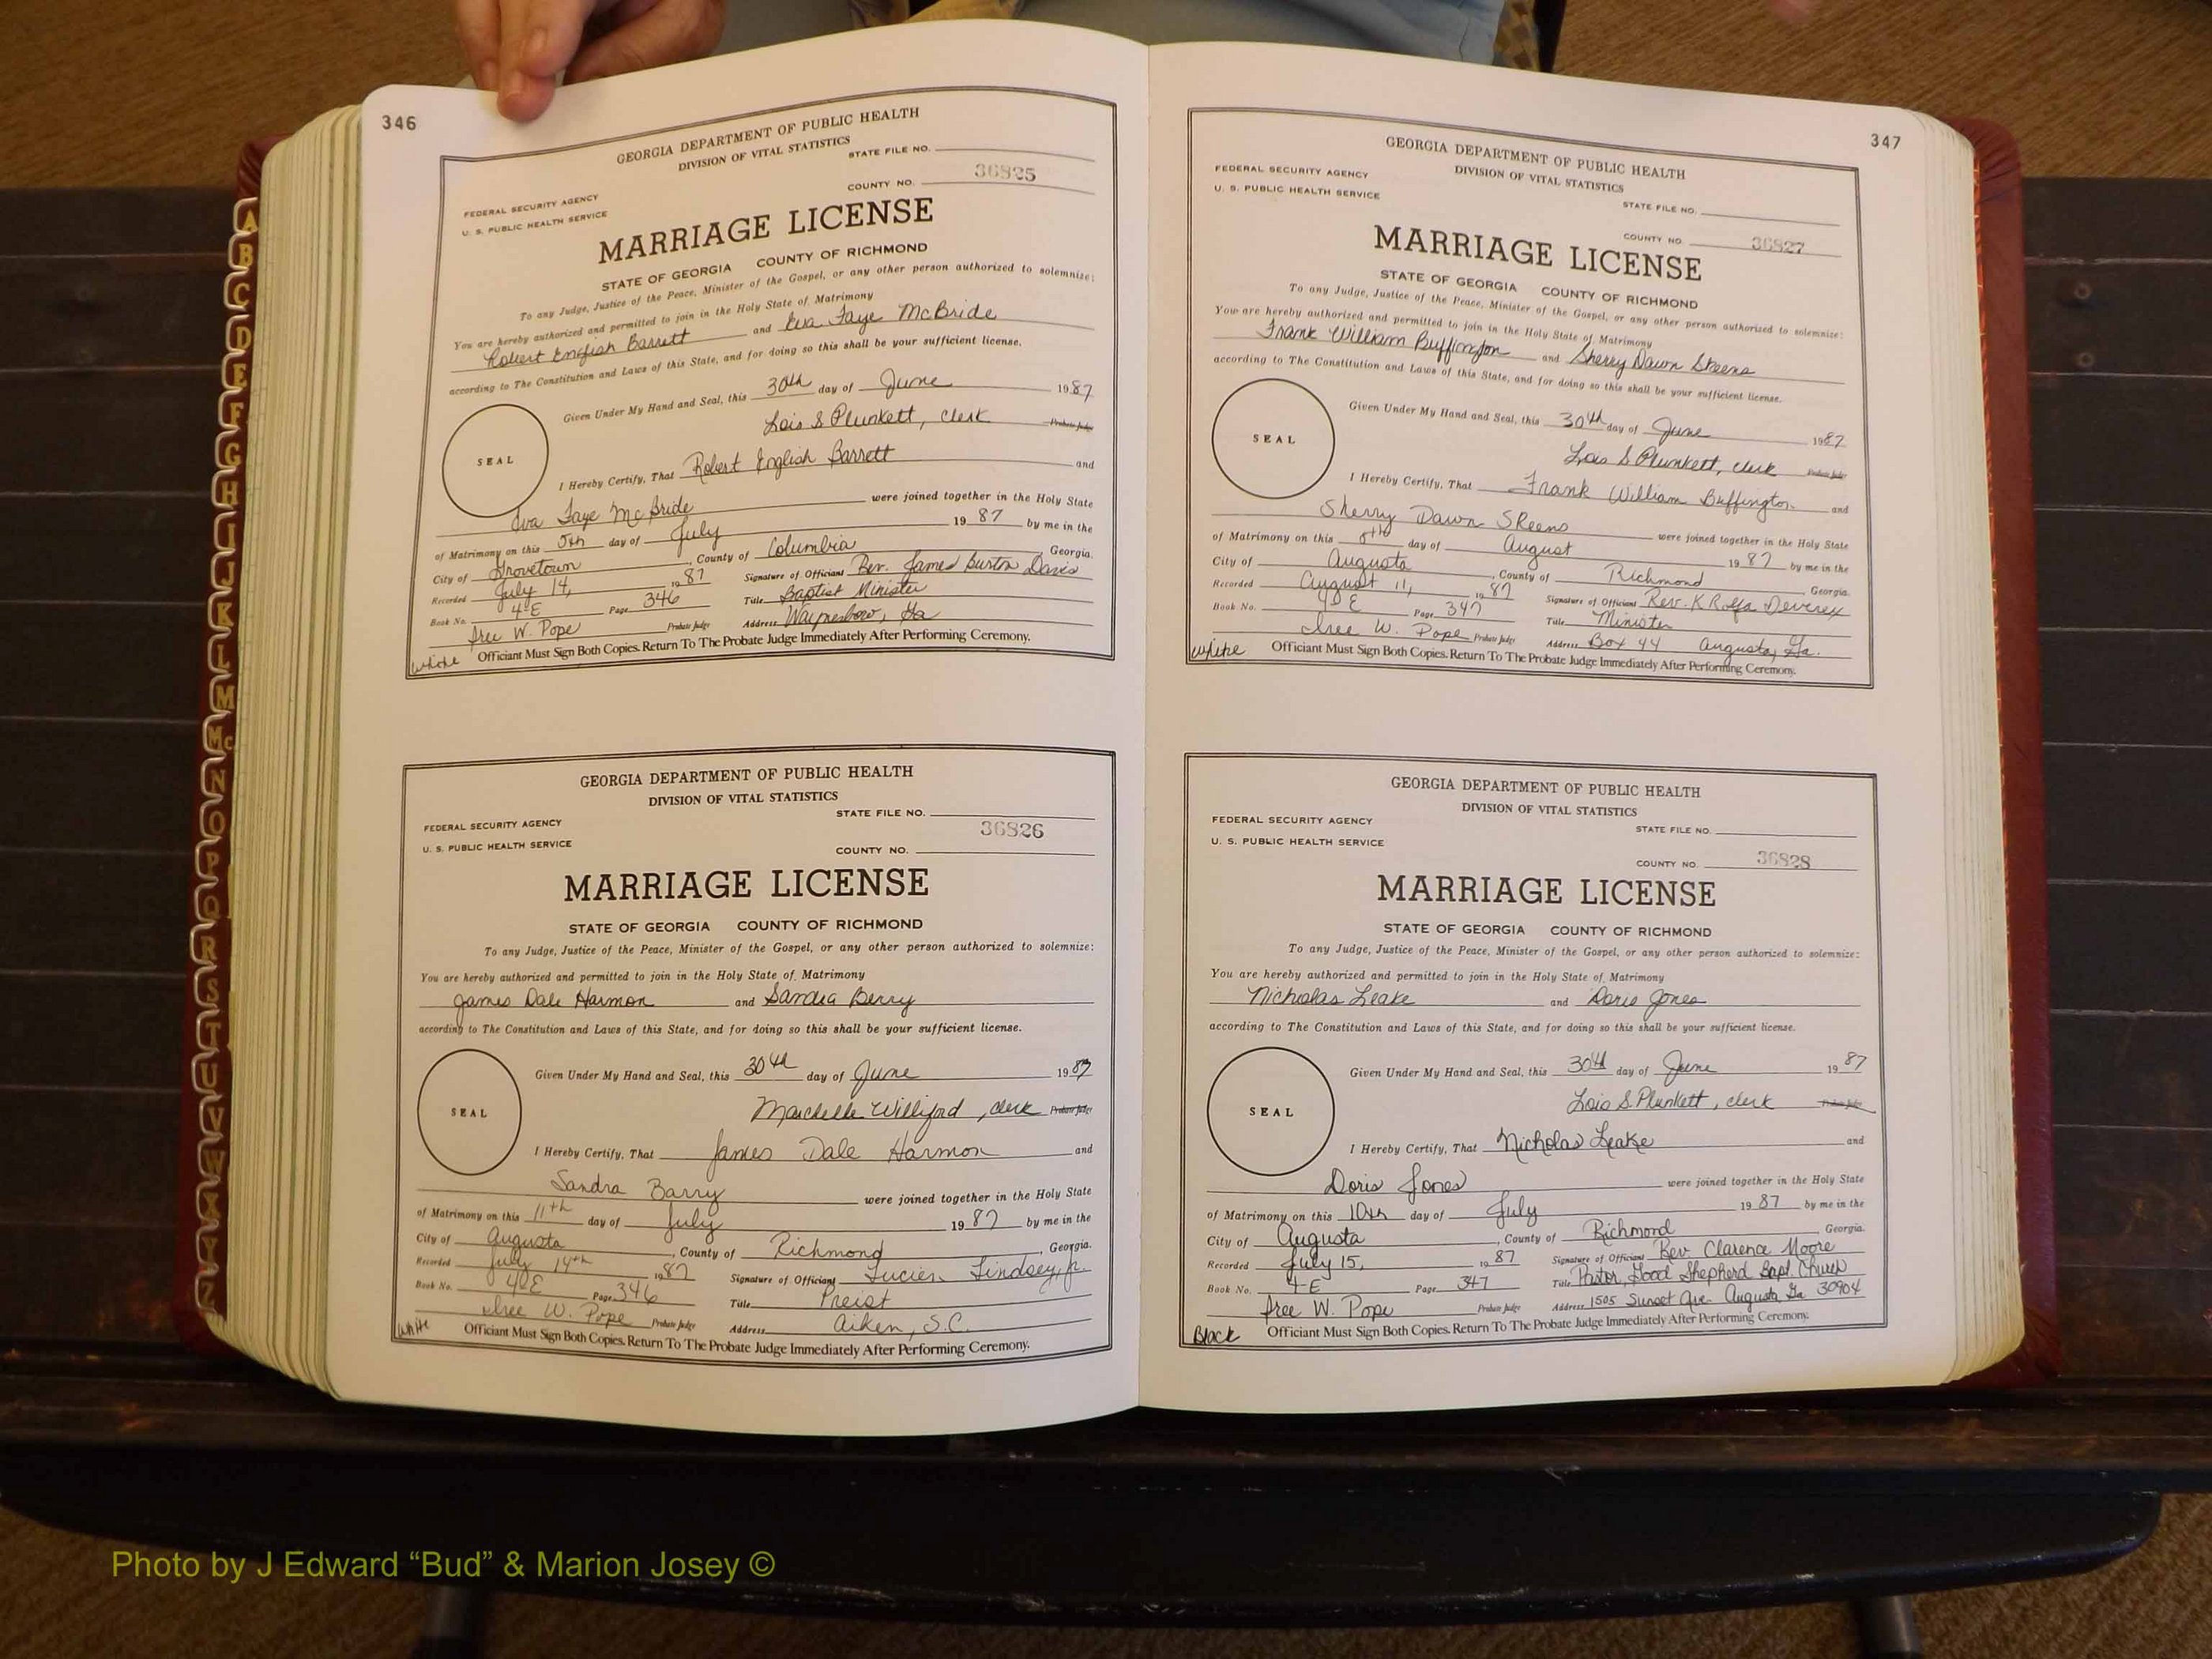 346
GEORGIA DEPARTMENT OF PUBLIC HEALTH
DIVISION OF VITAL STATISTICS
STATE FILE NO.
36825
COUNTY NO.
FEDERAL SECURITY AGENCY
U. S. PUBLIC HEALTH SERVICE
MARRIAGE LICENSE
STATE OF GEORGIA COUNTY OF RICHMOND
To any Judge, Justice of the Peace, Minister of the Gospel, or any other person authorized to solemnize:
You are hereby authorized and permitted to join in the Holy State of Matrimony
Robert English Barrett and Eva Faye McBride
according to The Constitution and Laws of this State, and for doing so this shall be your sufficient license.
Given Under My Hand and Seal, this 30th day of June 1987
Lois S Plunkett, clerk Probate Judge
SEAL
I Hereby Certify, That Robert English Barrett and
Eva Faye McBride were joined together in the Holy State
of Matrimony on this 5th day of July 19 87 by me in the
City of Grovetown, County of Columbia, Georgia.
Recorded July 14, 19 87 Signature of Officiant Rev. James Burton Davis
Book No. 4-E Page 346 Title Baptist Minister
W. Pope Probate Judge Address Waynesboro, Ga
White Officiant Must Sign Both Copies. Return To The Probate Judge Immediately After Performing Ceremony.
GEORGIA DEPARTMENT OF PUBLIC HEALTH
DIVISION OF VITAL STATISTICS
STATE FILE NO.
36826
FEDERAL SECURITY AGENCY
U. S. PUBLIC HEALTH SERVICE
COUNTY NO.
MARRIAGE LICENSE
STATE OF GEORGIA COUNTY OF RICHMOND
To any Judge, Justice of the Peace, Minister of the Gospel, or any other person authorized to solemnize:
You are hereby authorized and permitted to join in the Holy State of Matrimony
James Dale Harmon and Sandra Berry
according to The Constitution and Laws of this State, and for doing so this shall be your sufficient license.
Given Under My Hand and Seal, this 30th day of June 1987
Marchelle Williford, clerk Probate Judge
SEAL
I Hereby Certify, That James Dale Harmon and
Sandra Barry were joined together in the Holy State
of Matrimony on this 11th day of July 19 87 by me in the
City of Augusta, County of Richmond, Georgia.
Recorded July 14th 1987 Signature of Officiant Lucien Lindsey, Jr.
Book No. 4-E Page 346 Title Preist
W. Pope Probate Judge Address Aiken, S.C.
White Officiant Must Sign Both Copies. Return To The Probate Judge Immediately After Performing Ceremony.
347
GEORGIA DEPARTMENT OF PUBLIC HEALTH
DIVISION OF VITAL STATISTICS
FEDERAL SECURITY AGENCY
U. S. PUBLIC HEALTH SERVICE
STATE FILE NO.
COUNTY NO. 36827
MARRIAGE LICENSE
STATE OF GEORGIA COUNTY OF RICHMOND
To any Judge, Justice of the Peace, Minister of the Gospel, or any other person authorized to solemnize:
You are hereby authorized and permitted to join in the Holy State of Matrimony
Frank William Buffington and Sherry Dawn Skeens
according to The Constitution and Laws of this State, and for doing so this shall be your sufficient license.
Given Under My Hand and Seal, this 30th day of June 1987
Lois S Plunkett, clerk Probate Judge
SEAL
I Hereby Certify, That Frank William Buffington and
Sherry Dawn Skeens were joined together in the Holy State
of Matrimony on this 8th day of August 19 87 by me in the
City of Augusta, County of Richmond, Georgia.
Recorded August 11, 19 87 Signature of Officiant Rev. K
Book No. Page 347 Title Minister
W. Pope Probate Judge Address Box 44 Augusta, Ga.
White Officiant Must Sign Both Copies. Return To The Probate Judge Immediately After Performing Ceremony.
GEORGIA DEPARTMENT OF PUBLIC HEALTH
DIVISION OF VITAL STATISTICS
FEDERAL SECURITY AGENCY
STATE FILE NO.
U. S. PUBLIC HEALTH SERVICE
COUNTY NO. 36828
MARRIAGE LICENSE
STATE OF GEORGIA COUNTY OF RICHMOND
To any Judge, Justice of the Peace, Minister of the Gospel, or any other person authorized to solemnize:
You are hereby authorized and permitted to join in the Holy State of Matrimony
Nicholas Leake and Doris Jones
according to The Constitution and Laws of this State, and for doing so this shall be your sufficient license.
Given Under My Hand and Seal, this 30th day of June 19 87
Lois S Plunkett, clerk Probate Judge
SEAL
I Hereby Certify, That Nicholas Leake and
Doris Jones were joined together in the Holy State
of Matrimony on this 10th day of July 19 87 by me in the
City of Augusta, County of Richmond, Georgia.
Recorded July 15, 19 87 Signature of Officiant Rev Clarence Moore
Book No. 4-E Page 347 Title Pastor, Good Shepherd Bapt. Church
W. Pope Probate Judge Address 1505 Sunset Ave. Augusta Ga 30904
Black Officiant Must Sign Both Copies. Return To The Probate Judge Immediately After Performing Ceremony.
A
B
C
D
E
F
G
H
I
J
K
L
M
Mc
N
O
P
Q
R
S
T
U
V
W
X
Y
Z
Photo by J Edward “Bud” & Marion Josey ©